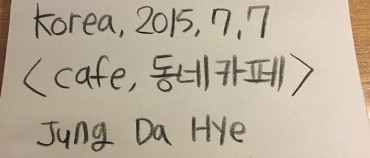 Korea, 2015, 7, 7
<cafe, 동네카페>
Jung Da Hye